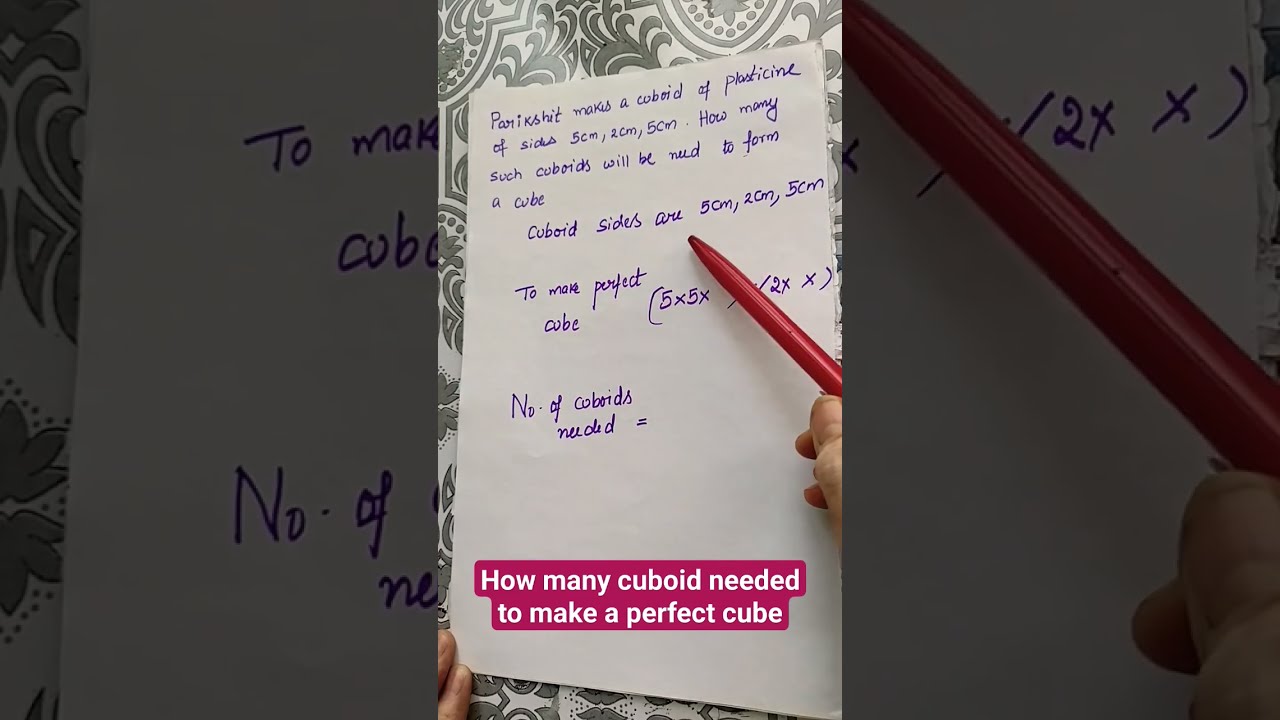 Parikshit makes a cuboid of plasticine
of sides 5cm, 2cm, 5cm. How many
such cuboids will be need to form
a cube
Cuboid sides are 5cm, 2cm, 5cm
To make perfect
cube
(5×5× /2× × )
No. of cuboids
needed =
How many cuboid needed
to make a perfect cube